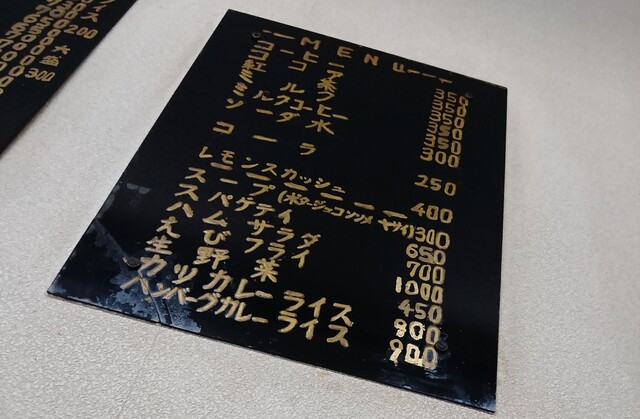 ーMENUーー
コーヒー 350
ココア 350
紅茶 350
ミルク 350
ミルクコーヒー 350
ソーダ水 300
コーラ 250
レモンスカッシュ 400
スープ(ポタージュコンソメヤサイ)300
スパゲティ 650
ハムサラダ 700
えびフライ 1000
生野菜 450
カツカレーライス 800
ハンバーグカレーライス 900
ス
200
大盛300